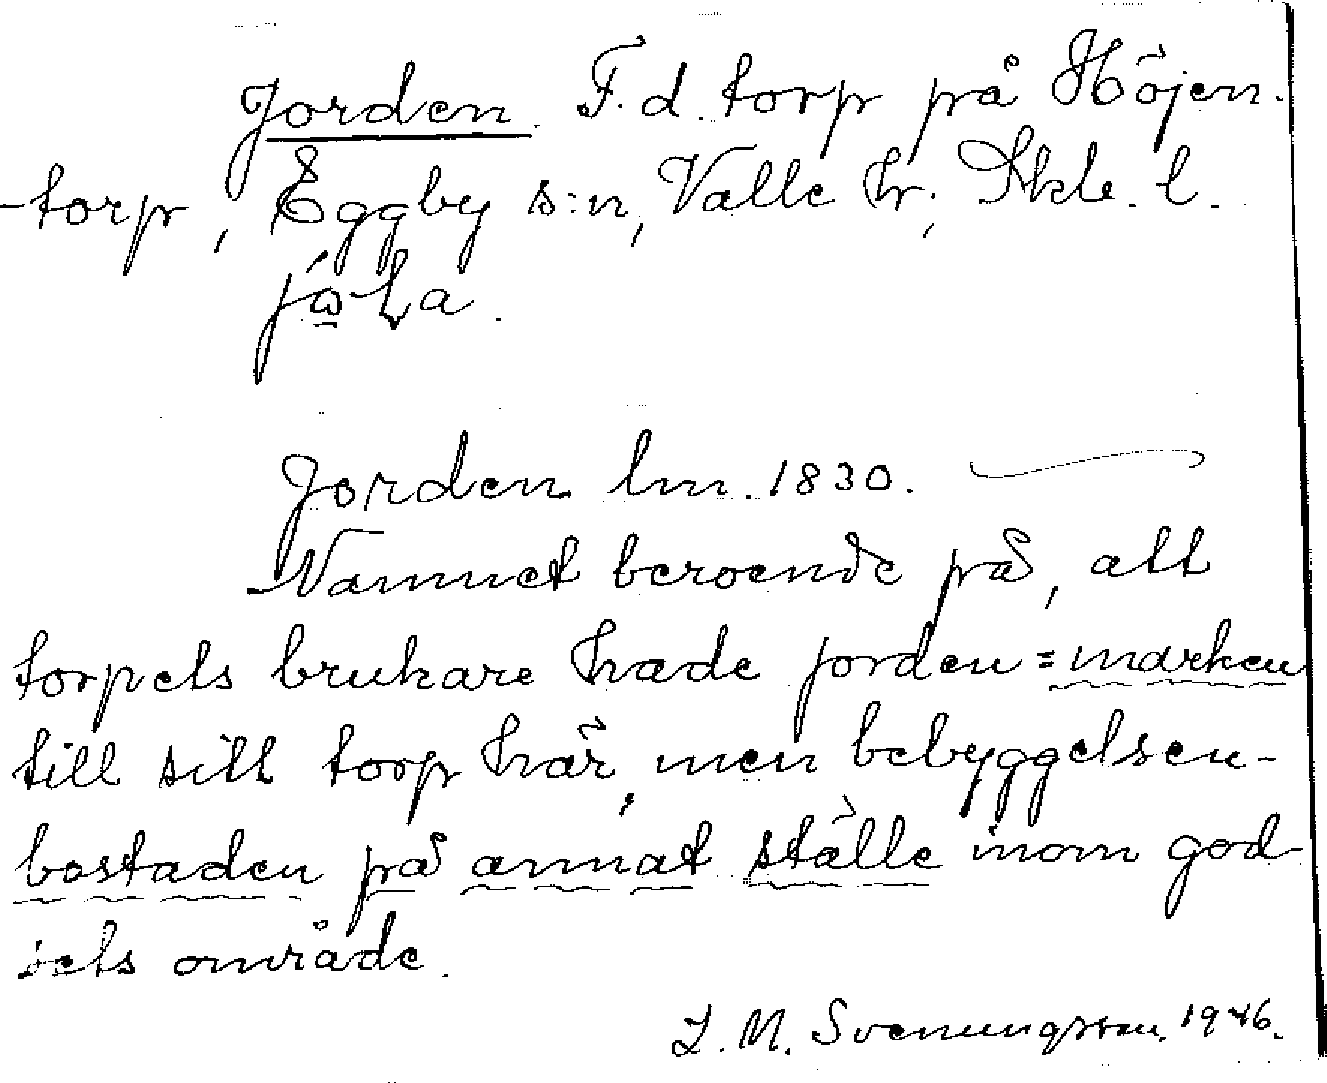 Jorden. F.d. torp på Höjen-
-torp, Eggby s:n, Valle hr, Skbl. l.

Jorden lm. 1830.
Namnet beroende på, att
torpets brukare hade jorden = marken
till sitt torp här, men bebyggelsen-
bostaden på annat ställe inom god-
sets område.
L. M. Svenungsson. 1946.